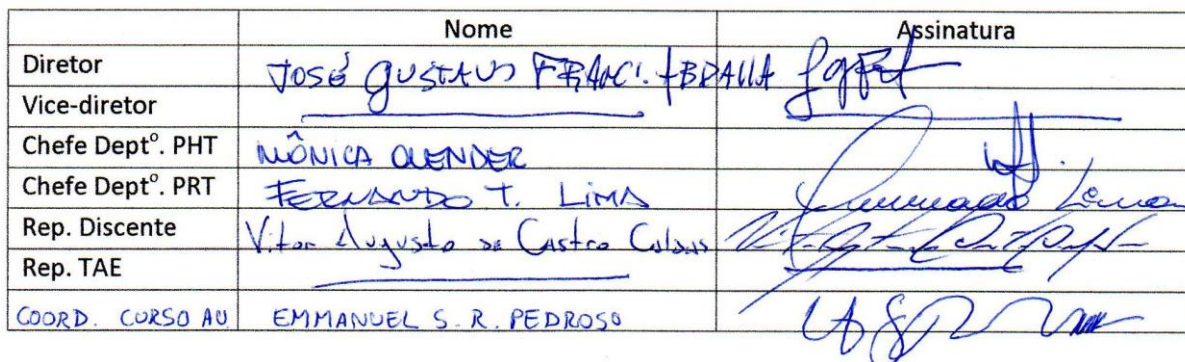 Nome Assinatura
Diretor JOSÉ GUSTAVO FRANC. ABDALLA
Vice-diretor
Chefe Deptº. PHT MÔNICA OLENDER
Chefe Deptº. PRT FERNANDO T. LIMA
Rep. Discente Vitor Augusto de Castro
Rep. TAE
COORD. CURSO AU EMMANUEL S. R. PEDROSO